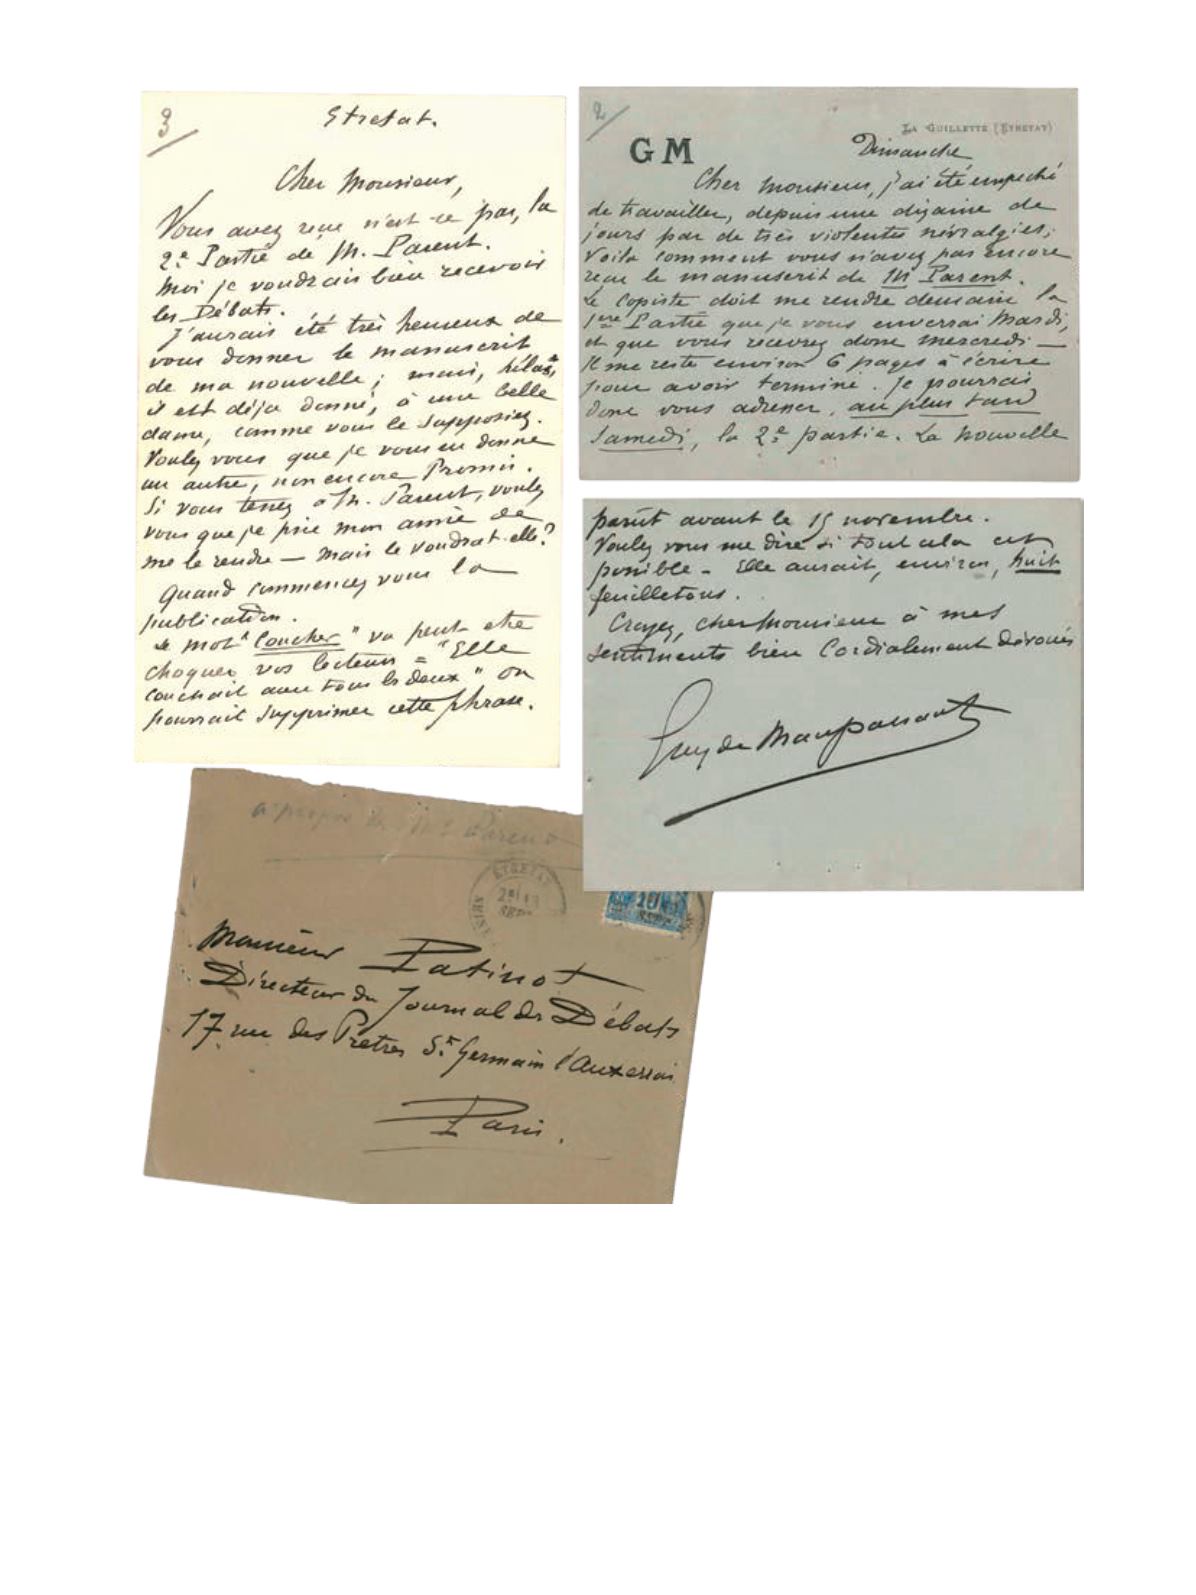 3
Etretat.
Cher Monsieur,
Vous avez reçu n'est-ce pas, la
2e Partie de M. Parent.
Moi je voudrais bien recevoir
les Débats.
J'aurais été très heureux de
vous donner le manuscrit
de ma nouvelle ; mais, hélas,
il est déja donné, à une belle
dame, comme vous le supposiez.
Voulez vous que je vous en donne
un autre, non encore Promis.
Si vous tenez à M. Parent, voulez
vous que je prie mon amie de
me le rendre — mais le voudrat-elle ?
Quand commencez vous la
publication.
Le mot "Coucher" va peut etre
choquer vos lecteurs = "Elle
couchait avec tous les deux" on
pourrait supprimer cette phrase.
2
LA GUILLETTE (ETRETAT)
GM
Dimanche
Cher Monsieur, j'ai été empeché
de travailler, depuis une dizaine de
jours par de très violentes névralgies ;
Voilà comment vous n'avez pas encore
reçu le manuscrit de M Parent.
Le copiste doit me rendre demain la
1ere Partie que je vous enverrai Mardi,
et que vous recevrez donc mercredi —
Il me reste environ 6 pages à écrire
pour avoir terminé. Je pourrais
donc vous adresser, au plus tard
Samedi, la 2e partie. La nouvelle
parût avant le 15 novembre.
Voulez vous me dire si tout cela est
possible — Elle aurait, environ, huit
feuilletons.
Croyez, cher Monsieur à mes
sentiments bien Cordialement dévoués
Guy de Maupassant
a propos de Mr Parent
ETRETAT
SEPT
SEINE
10
Monsieur Patinot
Directeur du Journal des Débats
17 rue des Pretres St Germain l'Auxerrois
Paris.